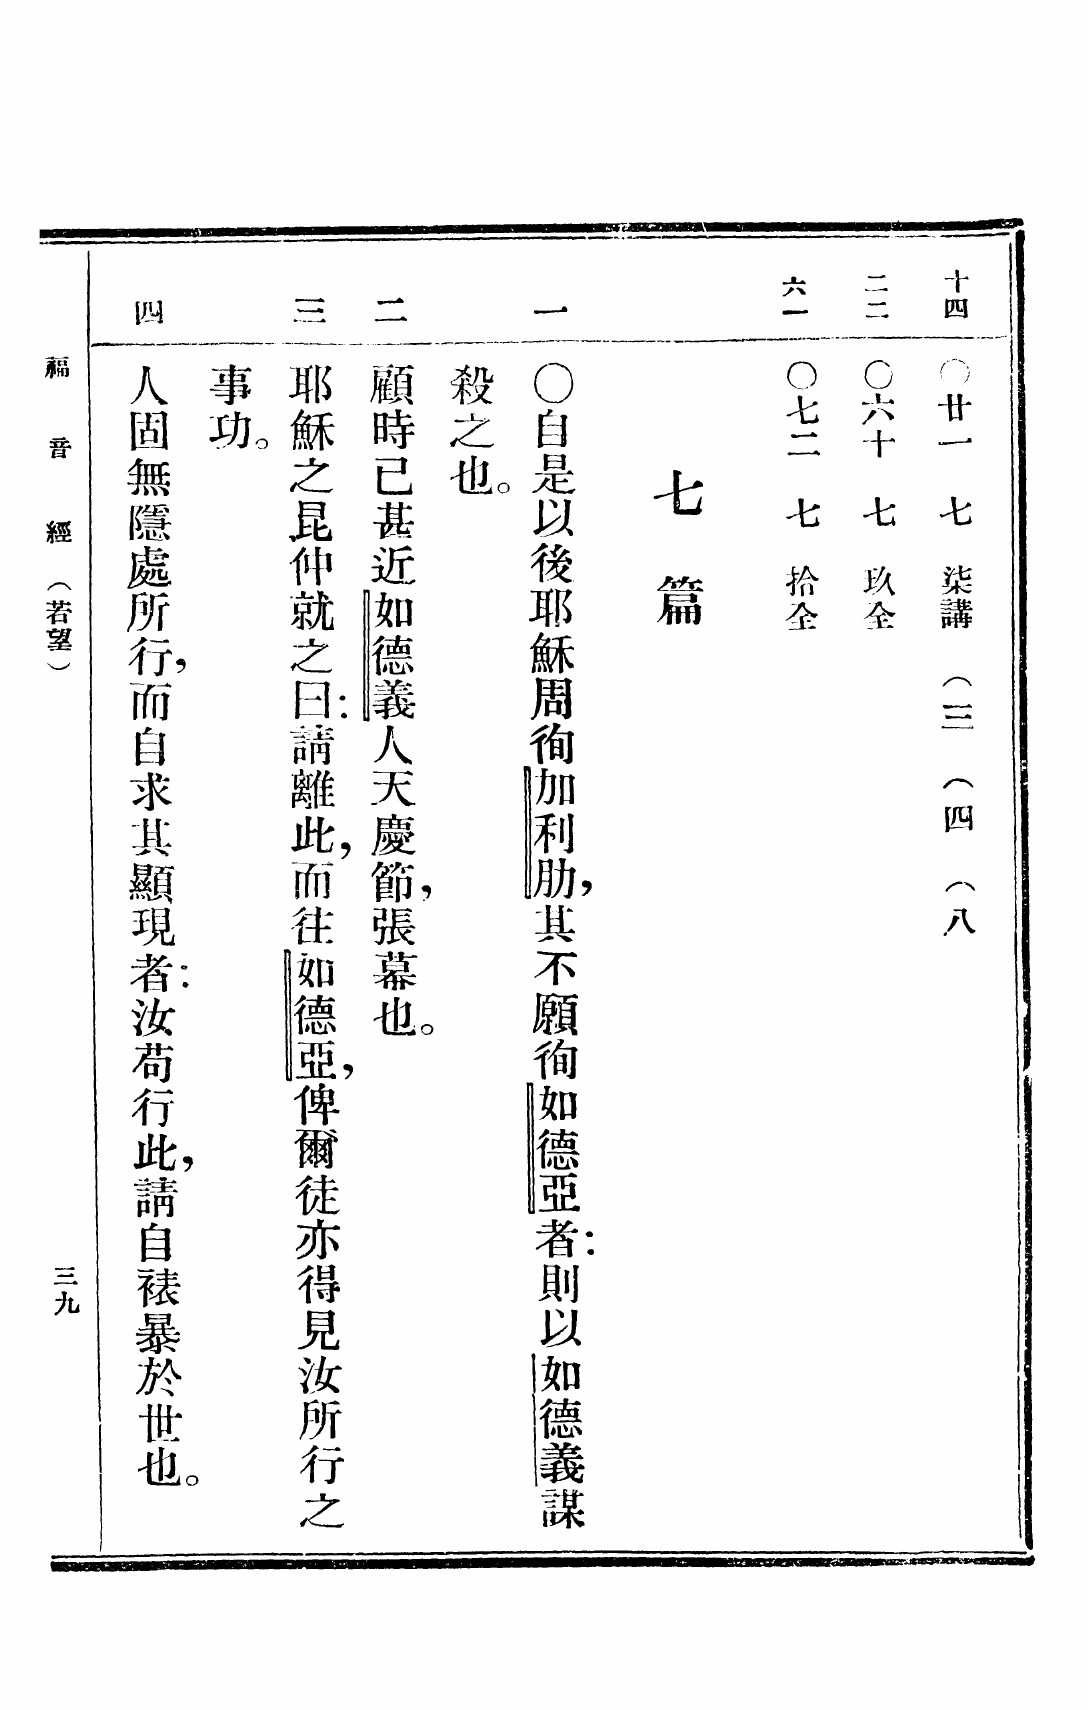 十四 〇廿一 七 柒講 （三 （四 （八
二二 〇六十 七 玖仝
六一 〇七二 七 拾仝
七篇
一 〇自是以後耶穌周徇加利肋，其不願徇如德亞者：則以如德義謀
殺之也。
二 顧時已甚近如德義人天慶節，張幕也。
三 耶穌之昆仲就之曰：請離此，而往如德亞，俾爾徒亦得見汝所行之
事功。
四 人固無隱處所行，而自求其顯現者：汝苟行此，請自裱暴於世也。
福音經（若望） 三九